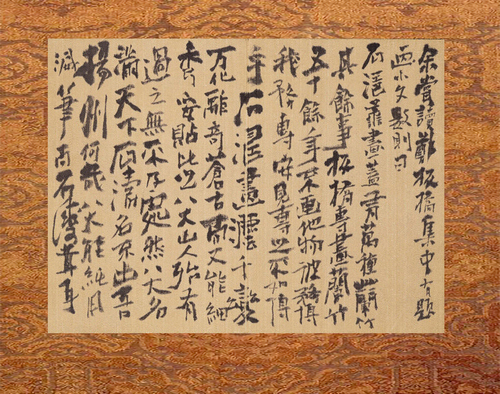 余嘗讀鄭板橋集中有題
画小文數則曰
石濤善畫蓋有萬種蘭竹
其餘事板橋專畫蘭竹
五十餘年不畫他物彼務博
我務專安見專之不如博
乎石濤畫法千變
万化離奇蒼古而又能細
秀安貼比之八大山人殆有
過之無不及處然八大名
滿天下石濤名不出吾
揚州何哉八大能純用
減筆而石濤茸耳